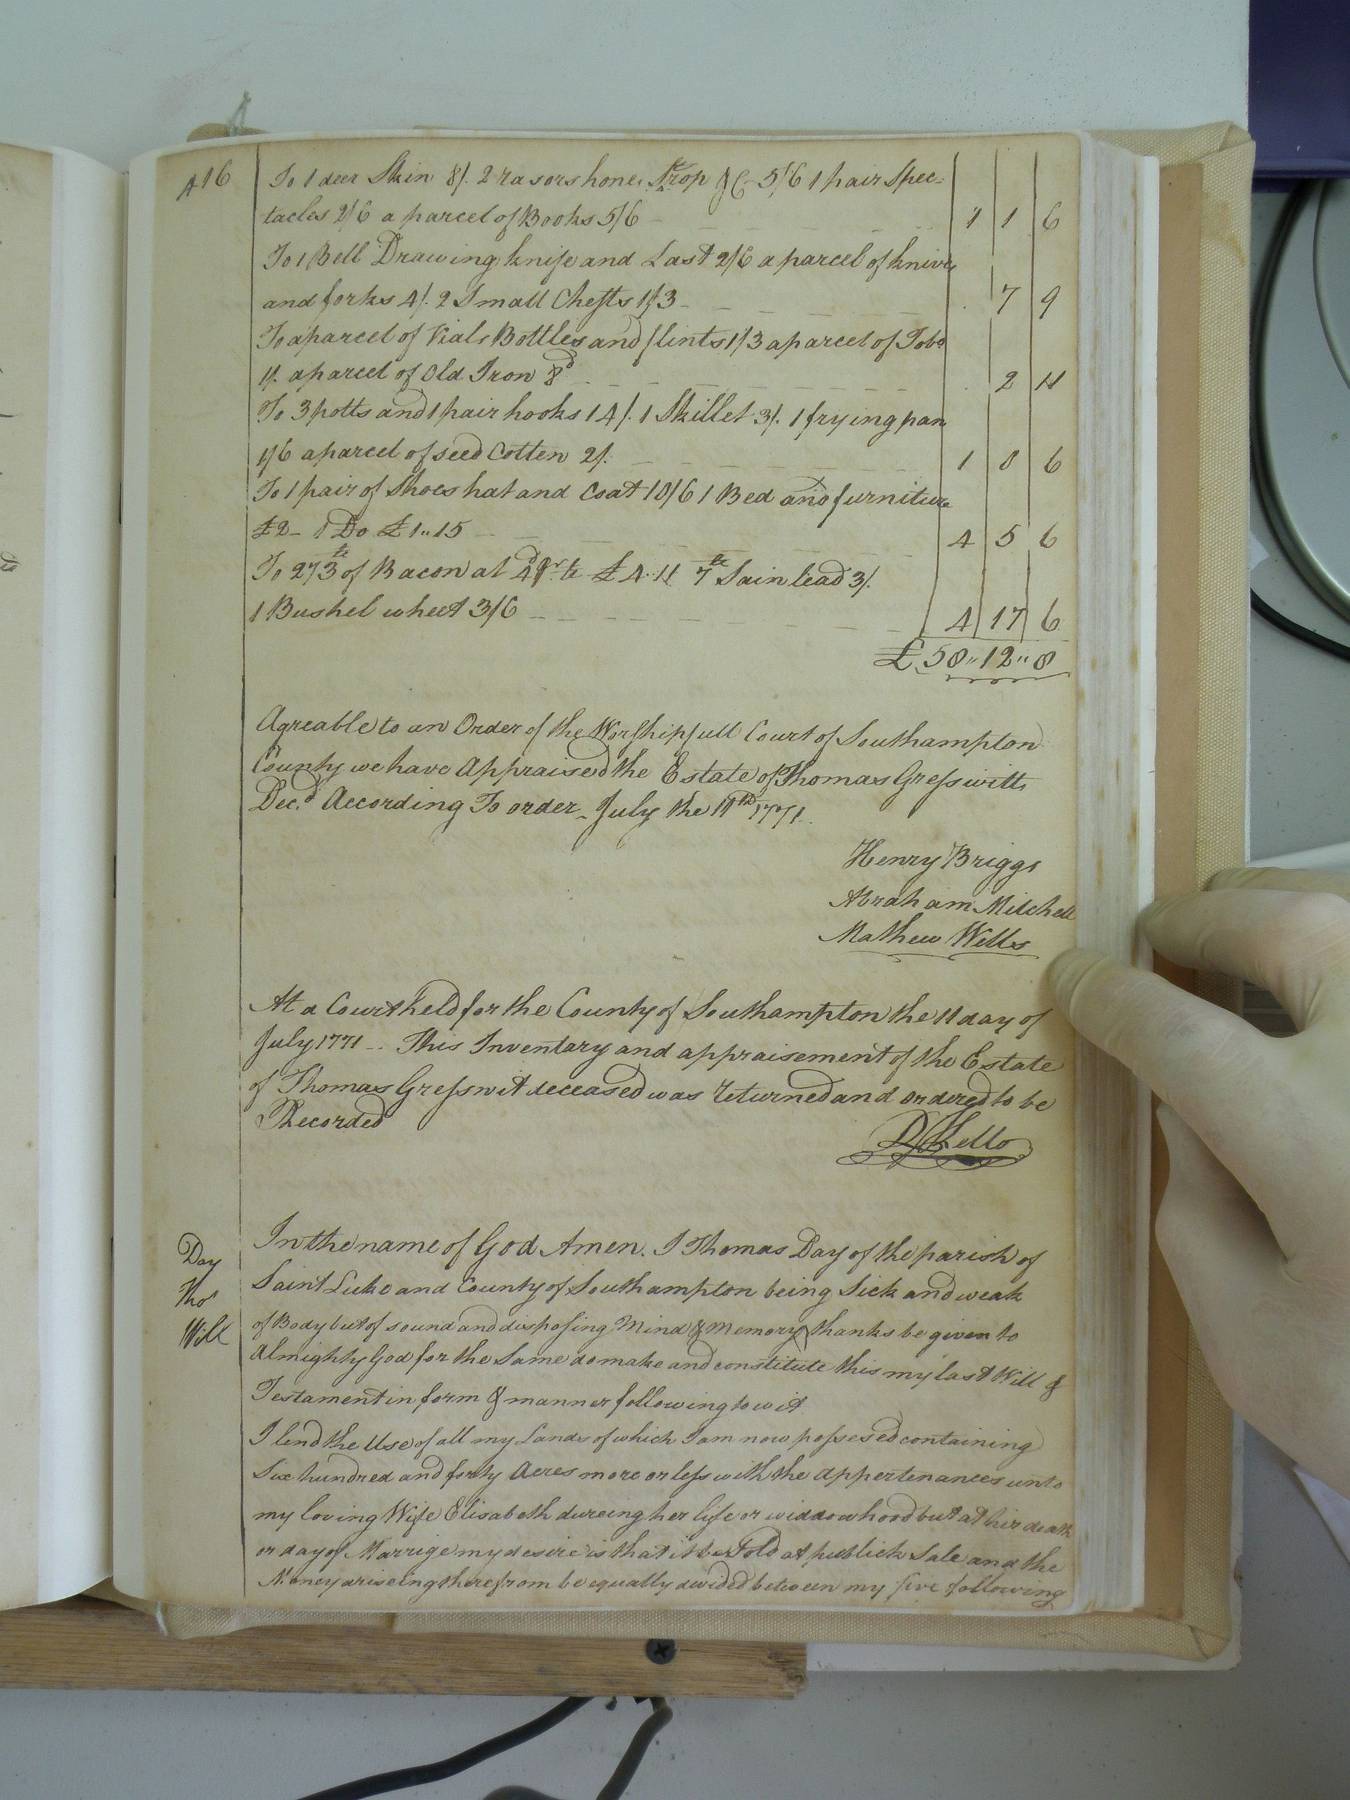 416
To 1 deer Skin 8/. 2 rasors hone Strop &C 5/6 1 pair Spec-
tacles 2/6 a parcel of Books 5/6 1 1 6
To 1 Bell Drawing knife and Last 2/6 a parcel of knives
and forks 4/. 2 Small Chests 1/3 7 9
To a parcel of Vials Bottles and flints 1/3 a parcel of Tobo
1/. a parcel of Old Iron 8d 2 11
To 3 potts and 1 pair hooks 14/. 1 Skillet 3/. 1 frying pan
1/6 a parcel of seed Cotten 2/. 1 0 6
To 1 pair of Shoes hat and Coat 10/6 1 Bed and furniture
£2- 1 Do £1"15 4 5 6
To 273 lb of Bacon at 4d £4.11 7 lb in lead 3/.
1 Bushel wheat 3/6 4 17 6
£58"12"8
Agreable to an Order of the Worshipfull Court of Southampton
County we have Appraised the Estate of Thomas Gresswitt
Decd. According To order July the 11th 1771
Henry Briggs
Abraham Mitchell
Mathew Wells
At a Court held for the County of Southampton the 11 day of
July 1771 This Inventary and appraisement of the Estate
of Thomas Gresswit deceased was returned and ordered to be
Recorded
Kello
Day
Thos
Will
In the name of God Amen. I Thomas Day of the parish of
Saint Luke and County of Southampton being Sick and weak
of Body but of sound and disposing Mind & Memory thanks be given to
Almighty God for the Same do make and constitute this my last Will &
Testament in form & manner following to wit
I lend the Use of all my Lands of which I am now possesed containing
Six hundred and forty Acres more or less with the appertenances unto
my loving Wife Elisabeth dureing her life or widdowhood but at hir death
or day of Marrige my desire is that it be Sold at publick Sale and the
Money ariseing therefrom be equally devided between my five following